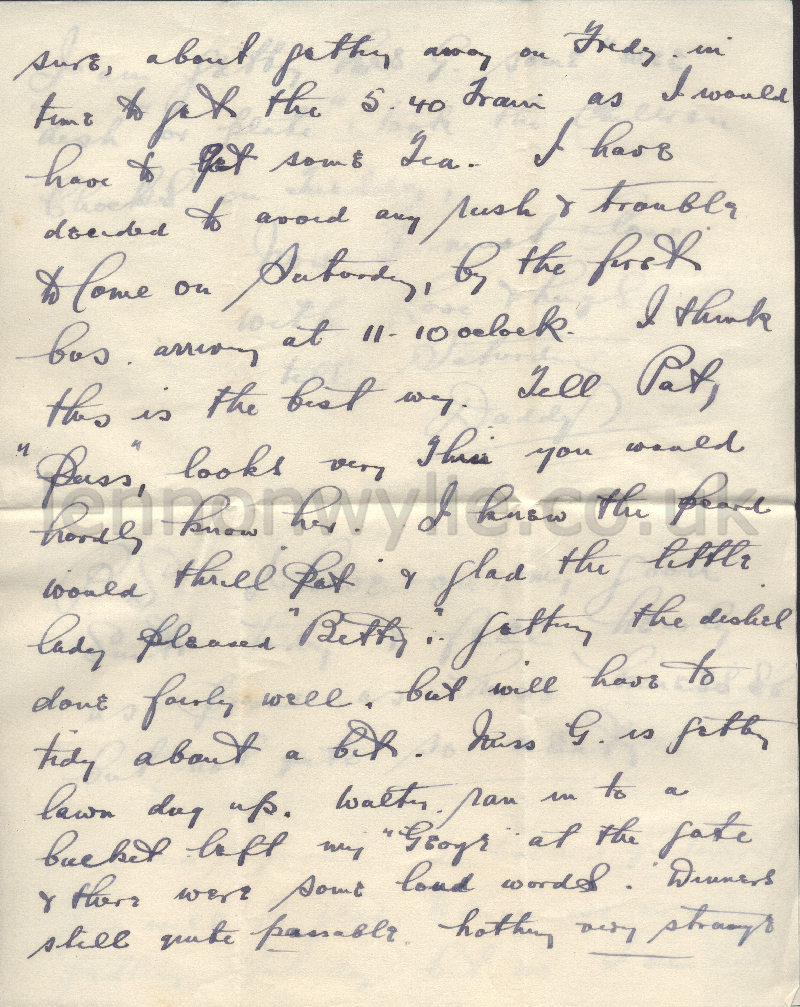 sure, about getting away on Friday in
time to get the 5.40 Train as I would
have to get some Tea. I have
decided to avoid any rush & trouble
to Come on Saturday, by the first
bus. arriving at 11-10 oclock. I think
this is the best way. Tell Pat,
"Puss", looks very Thin you would
hardly know her. I knew the
would thrill "Pat" & glad the little
lady pleased "Betty". getting the dishes
done fairly well. but will have to
tidy about a bit. Miss G. is getting
lawn dug up. Walter ran in to a
bucket left my "George" at the gate
& there were some loud words. Dinners
still quite passable. nothing very strange
lennonwylie.co.uk